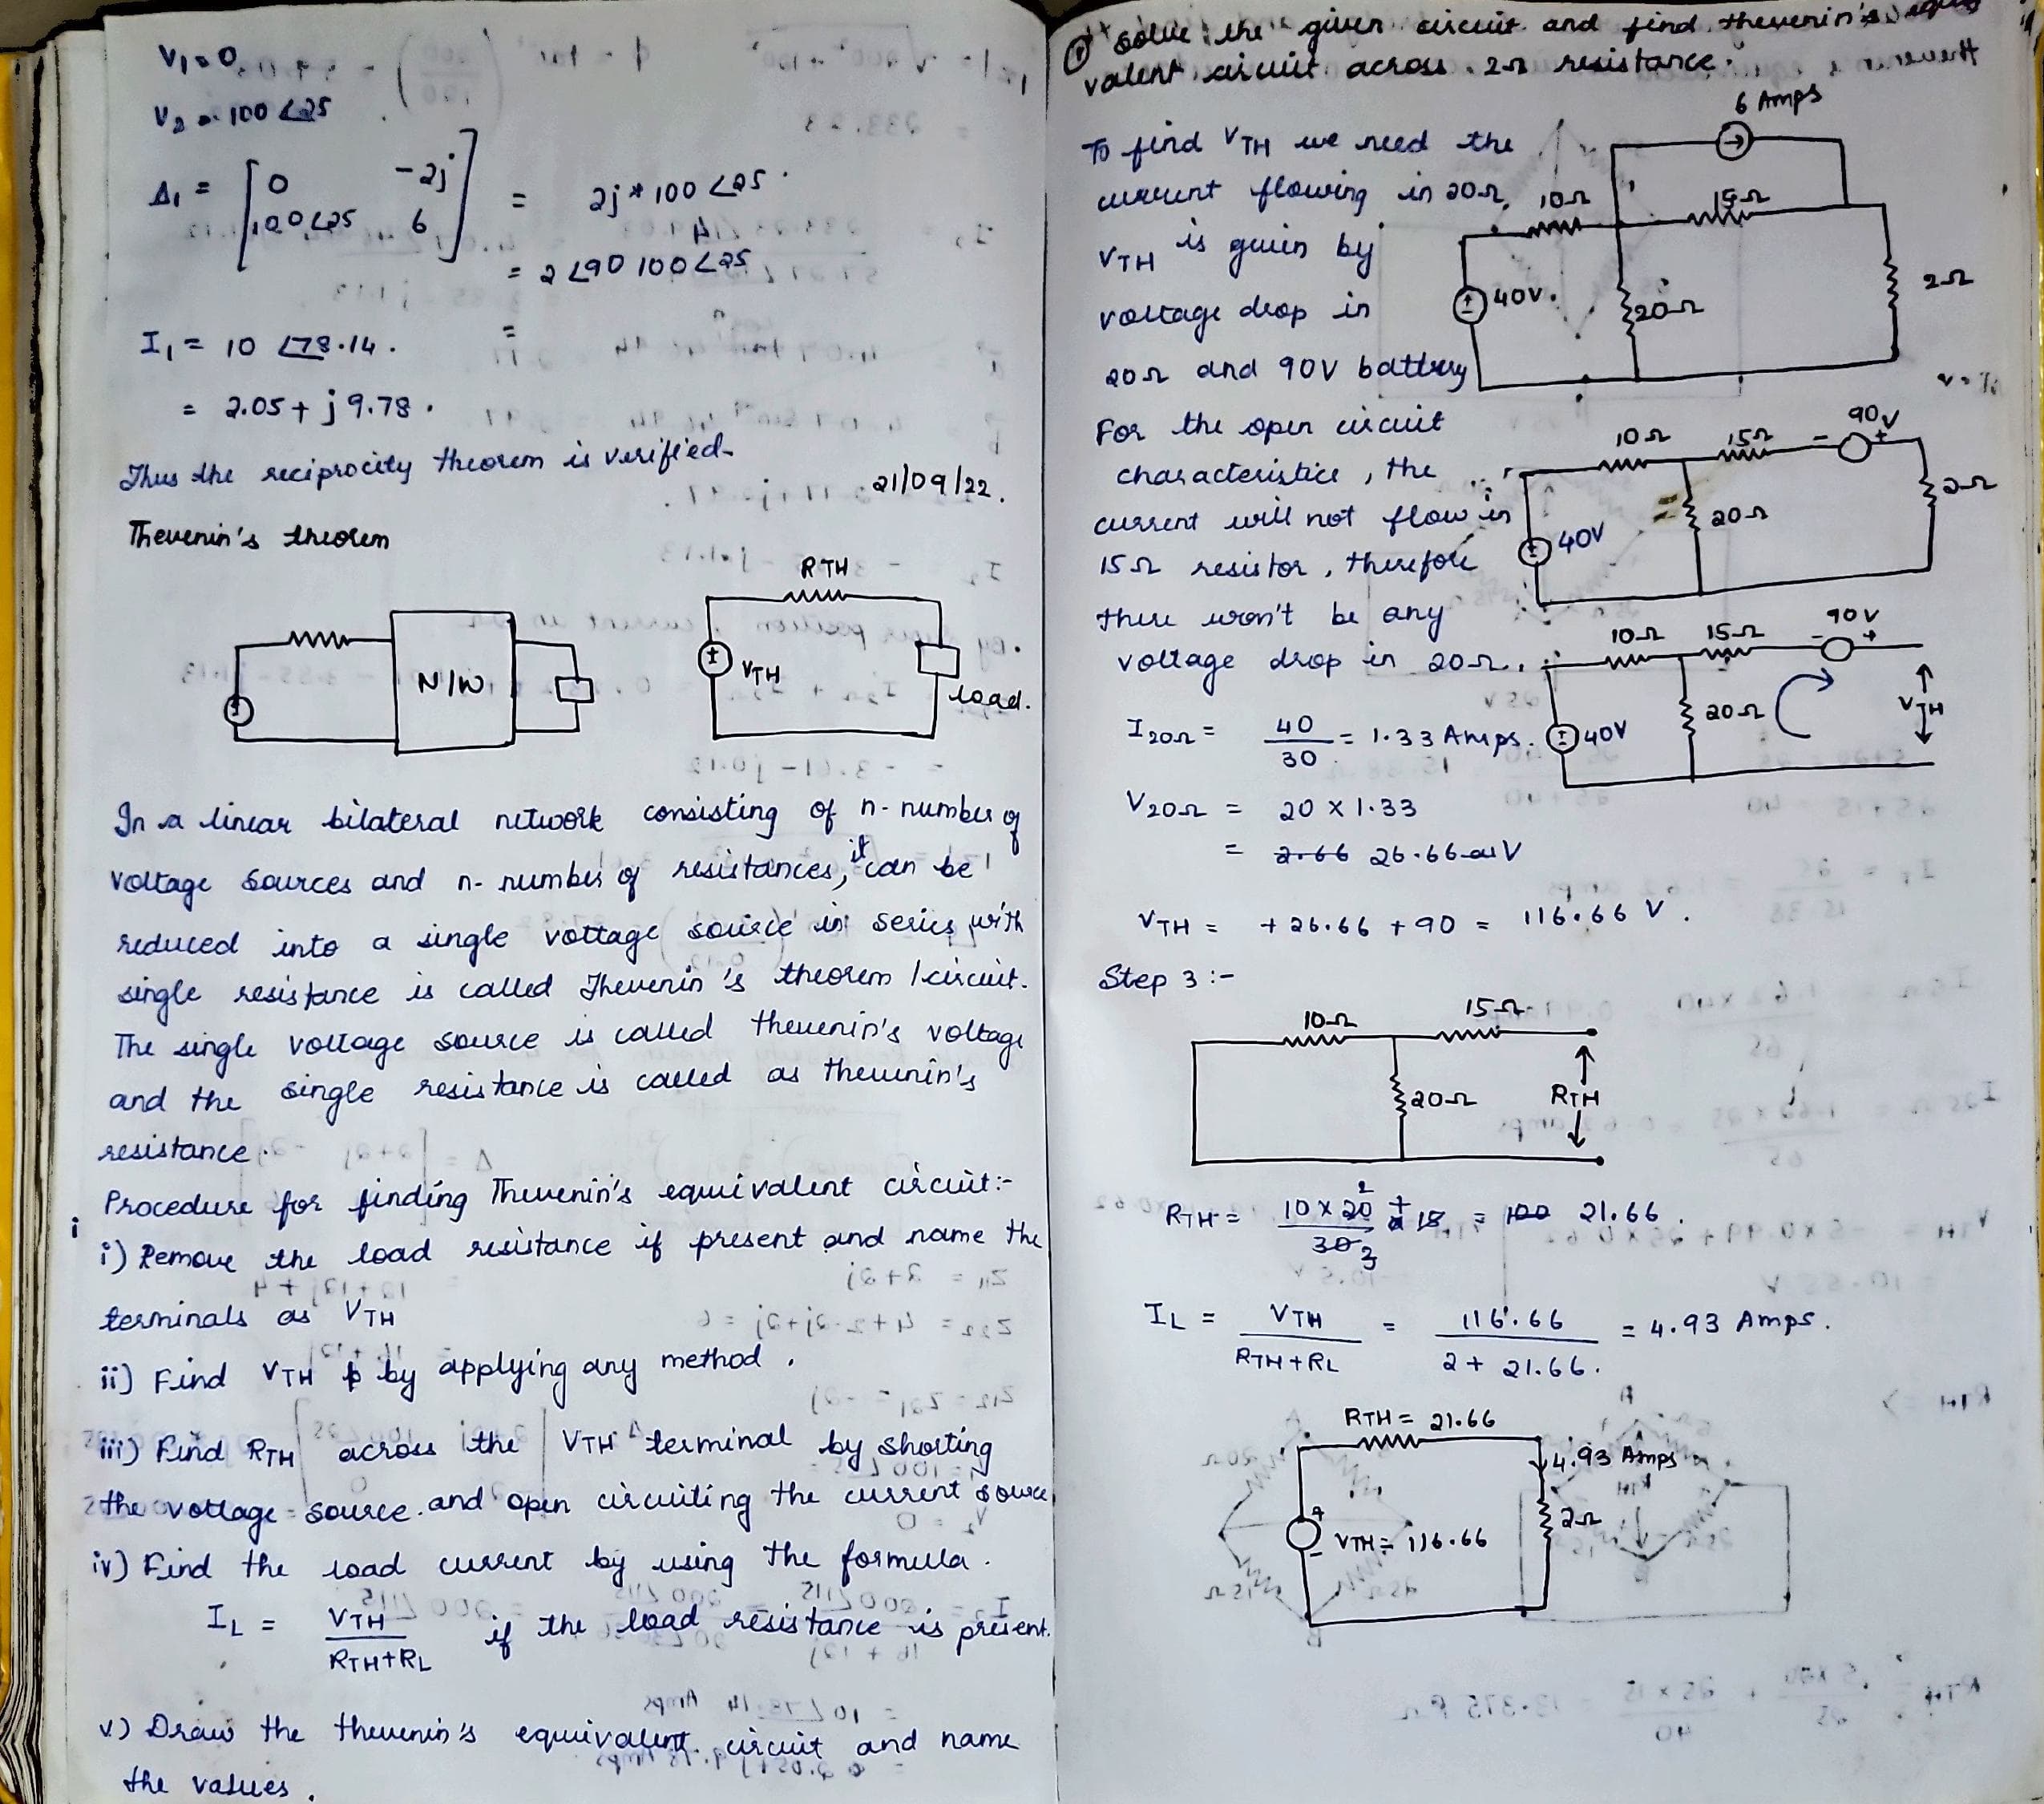 V₁ = 0
V₂ = 100 ∠25
Δ₁ = [0 -2j
100∠25 6] = 2j * 100 ∠25
= 2 ∠90 100∠25
I₁ = 10 ∠78.14. =
= 2.05 + j 9.78.
Thus the reciprocity theorem is verified.
21/09/22.
Thevenin's theorem
RTH
N/W
VTH
load.
In a linear bilateral network consisting of n- number of
voltage sources and n- number of resistances, it can be
reduced into a single voltage source in series with
single resistance is called Thevenin's theorem / circuit.
The single voltage source is called thevenin's voltage
and the single resistance is called as thevenin's
resistance.
Procedure for finding Thevenin's equivalent circuit:-
i) Remove the load resistance if present and name the
terminals as VTH
ii) Find VTH by applying any method.
iii) Find RTH across the VTH terminal by shorting
the voltage source and open circuiting the current source
iv) Find the load current by using the formula.
IL = VTH / RTH+RL if the load resistance is present.
v) Draw the thevenin's equivalent circuit and name
the values.
① Solve the given circuit and find thevenin's equi
valent circuit across 2Ω resistance.
6 Amps
To find VTH we need the
current flowing in 20Ω, 10Ω 15Ω
VTH is given by
voltage drop in 40V. 20Ω 2Ω
20Ω and 90V battery
For the open circuit
characteristics, the
current will not flow in
15Ω resistor, therefore
there won't be any
voltage drop in 20Ω.
10Ω 15Ω - 90V +
40V 20Ω 2Ω
10Ω 15Ω - 90V +
40V 20Ω VTH
I20Ω = 40 / 30 = 1.33 Amps.
V20Ω = 20 x 1.33
= 2.66 26.66 V
VTH = +26.66 + 90 = 116.66 V.
Step 3 :-
10Ω 15Ω
20Ω RTH
RTH = 10 x 20 / 30 + 15 = 21.66.
2
3
IL = VTH / RTH+RL = 116.66 / 2 + 21.66. = 4.93 Amps.
RTH = 21.66
4.93 Amps
+
- VTH = 116.66 2Ω